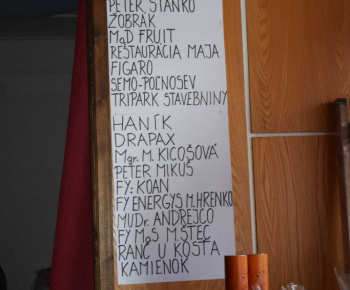 PETER STANKO
ŽOBRÁK
M&D FRUIT
REŠTAURÁCIA MAJA
FIGARO
SEMO-POĽNOSEV
TRIPARK STAVEBNINY
HANÍK
DRAPAX
Mgr. M. KICOŠOVÁ
PETER MIKUŠ
FY: KOAN
FY ENERGYS M.HRENKO
MUDr. ANDREJCO
FY M&S M.ŠTEC
RANČ U KOŠŤA
KAMIENOK